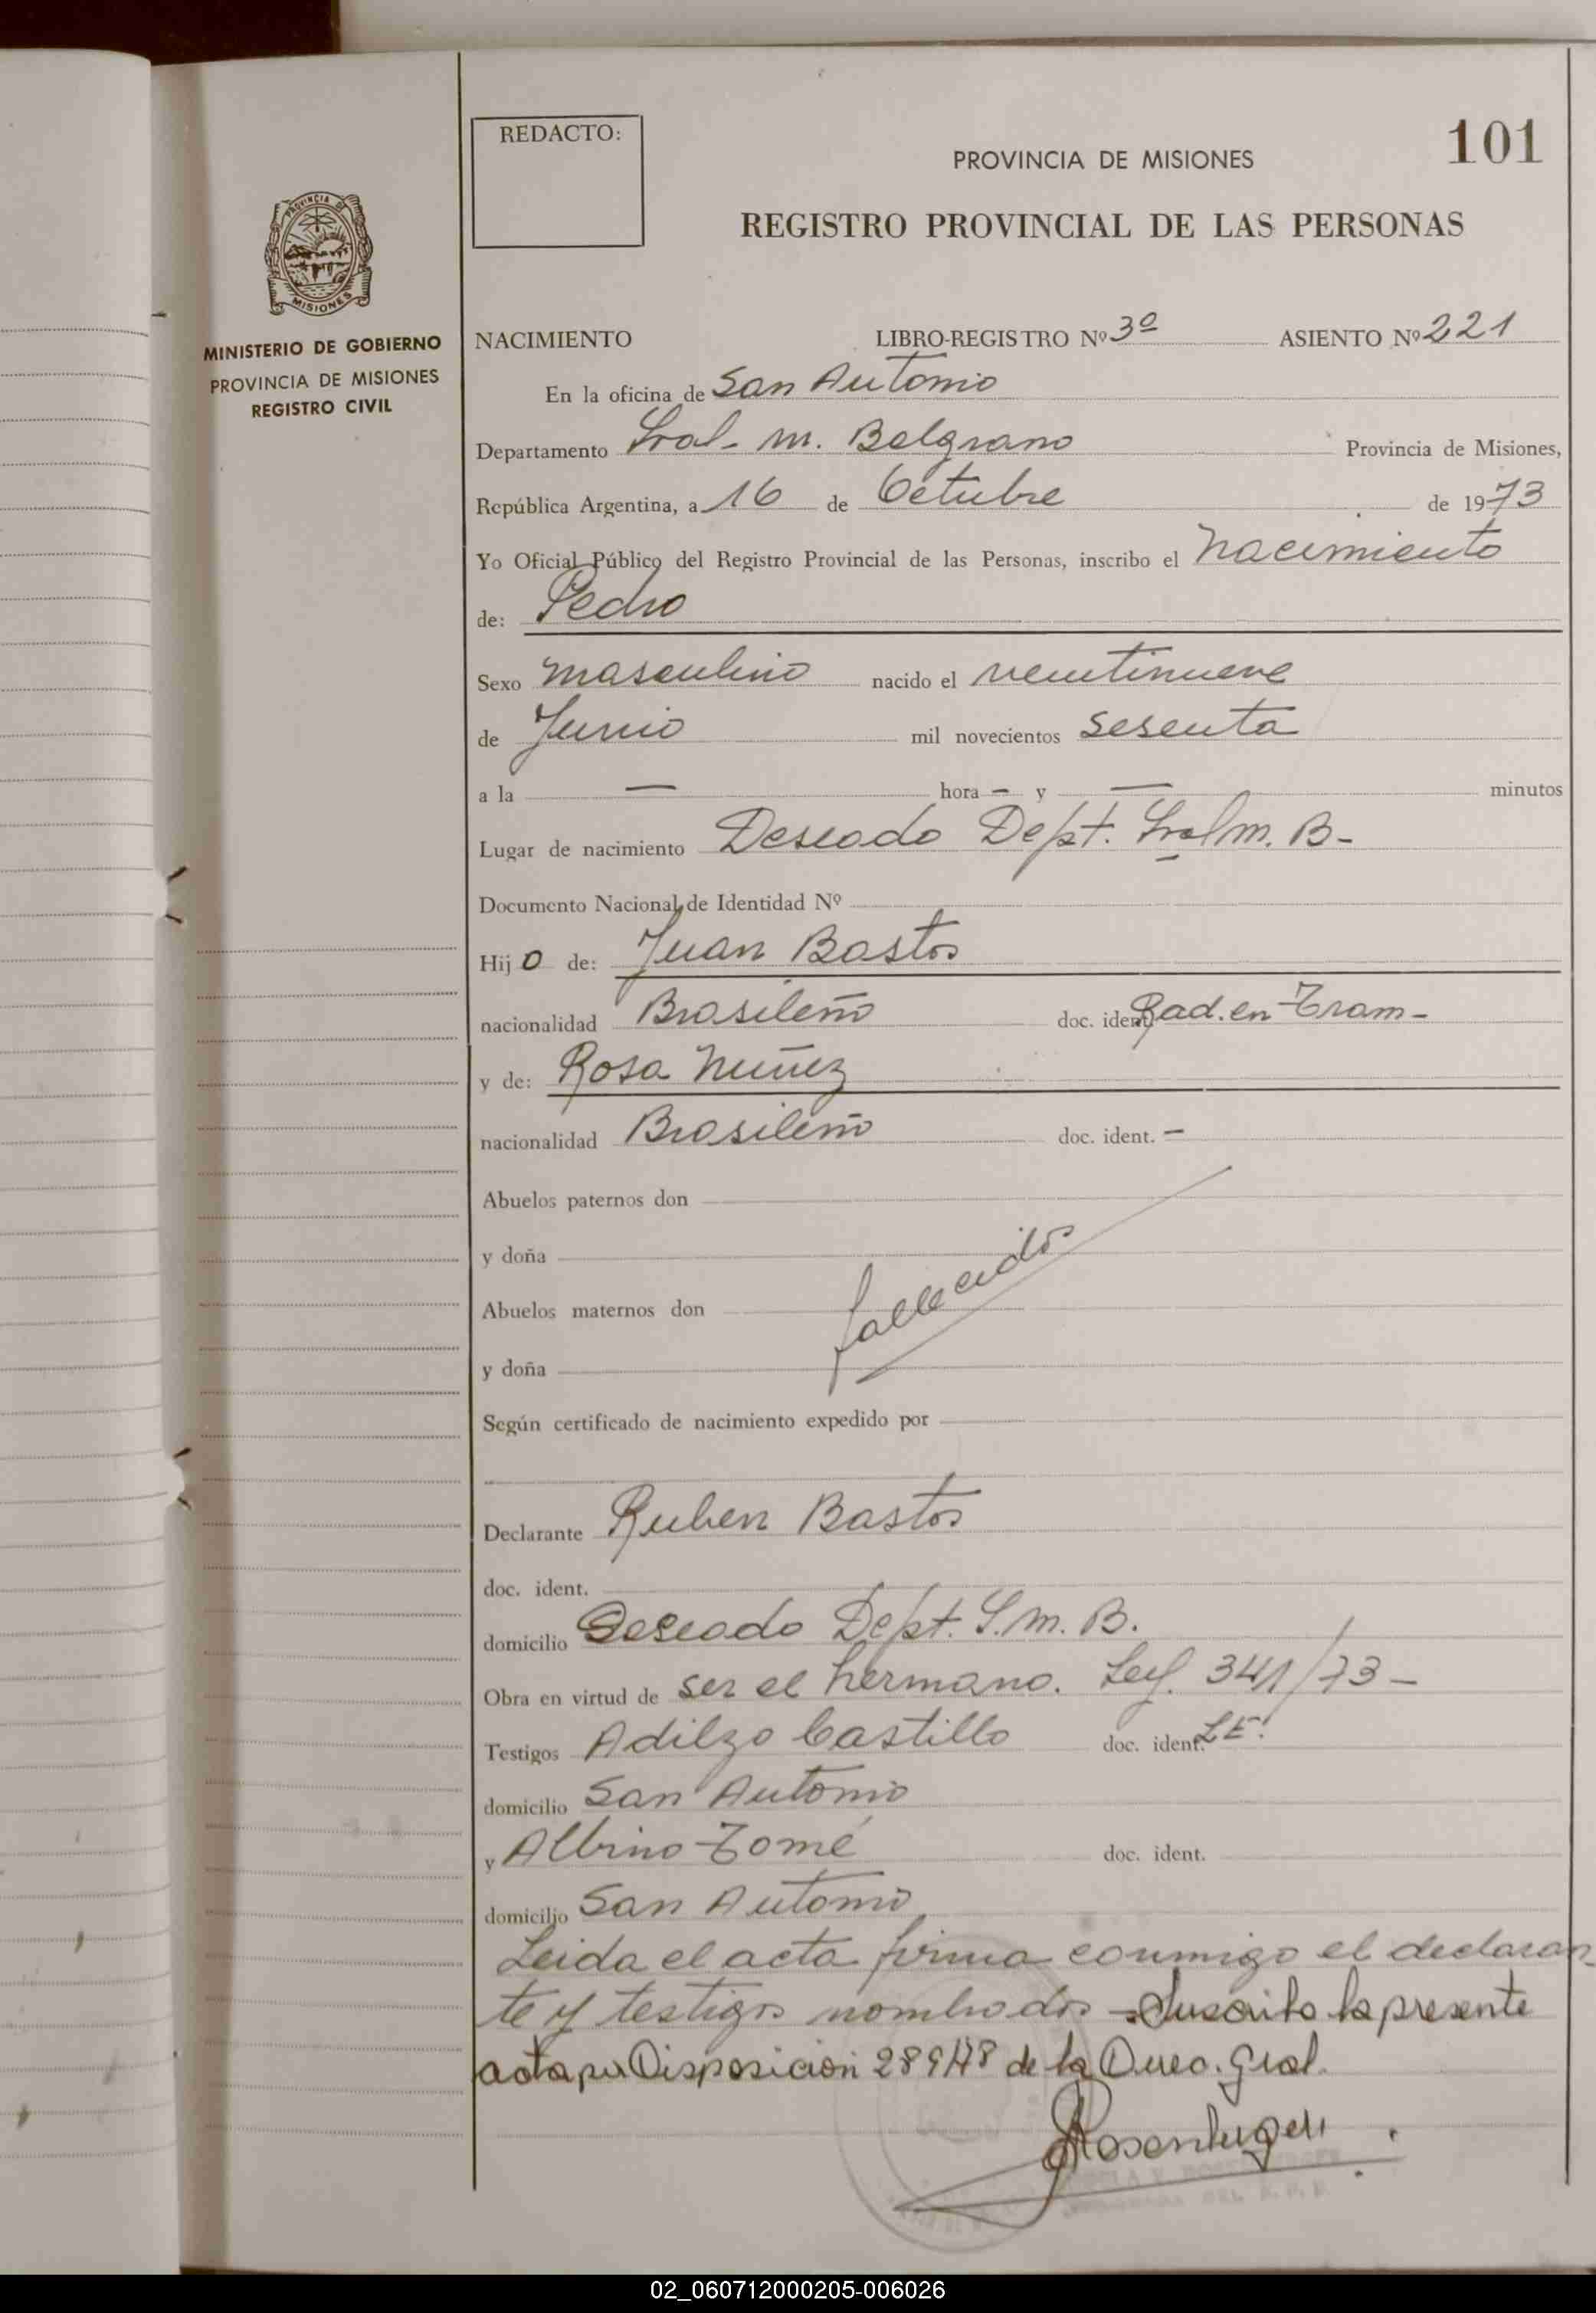 REDACTO:
PROVINCIA DE MISIONES
101
REGISTRO PROVINCIAL DE LAS PERSONAS
PROVINCIA DE
MISIONES
MINISTERIO DE GOBIERNO
PROVINCIA DE MISIONES
REGISTRO CIVIL
NACIMIENTO LIBRO-REGISTRO Nº 3º ASIENTO Nº 221
En la oficina de San Antonio
Departamento Gral. M. Belgrano Provincia de Misiones,
República Argentina, a 16 de Octubre de 1973
Yo Oficial Público del Registro Provincial de las Personas, inscribo el nacimiento
de: Pedro
Sexo masculino nacido el veintinueve
de Junio mil novecientos sesenta
a la — hora — y — minutos
Lugar de nacimiento Deseado Dept. Gral M. B-
Documento Nacional de Identidad Nº
Hijo de: Juan Bastos
nacionalidad Brasileño doc. ident. Rad. en Tram-
y de: Rosa Nuñez
nacionalidad Brasileño doc. ident. —
Abuelos paternos don
y doña
fallecidos
Abuelos maternos don
y doña
Según certificado de nacimiento expedido por
Declarante Ruben Bastos
doc. ident.
domicilio Deseado Dept. G. M. B.
Obra en virtud de ser el hermano. Ley. 341/73-
Testigos Adilzo Castillo doc. ident. L.E.
domicilio San Antonio
y Albino Tomé doc. ident.
domicilio San Antonio
Leida el acta firma conmigo el declaran-
te y testigos nombrados - Suscrito la presente
acta por Disposición 289/78 de la Direc. Gral.